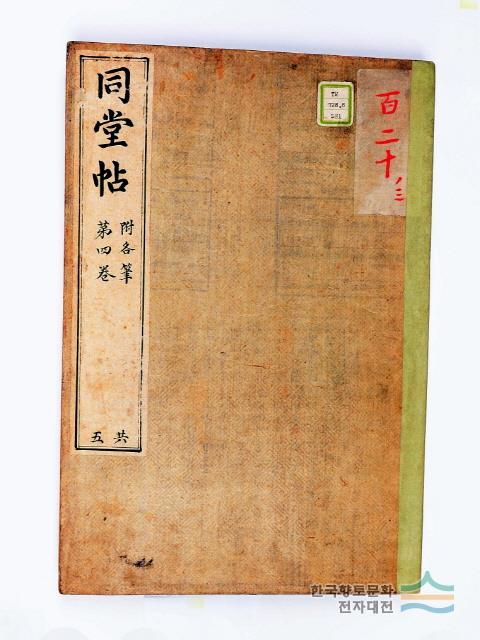 同堂帖
附各筆
第四卷
共五
TK
728.8
281
百二十ノ三
한국향토문화
전자대전